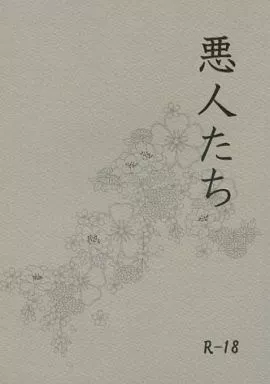 悪人たち
R-18